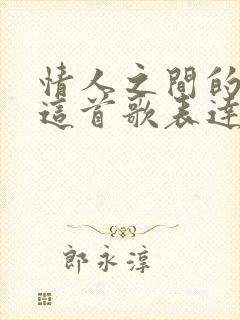 情人之間的
這首歌表達
郎永淳